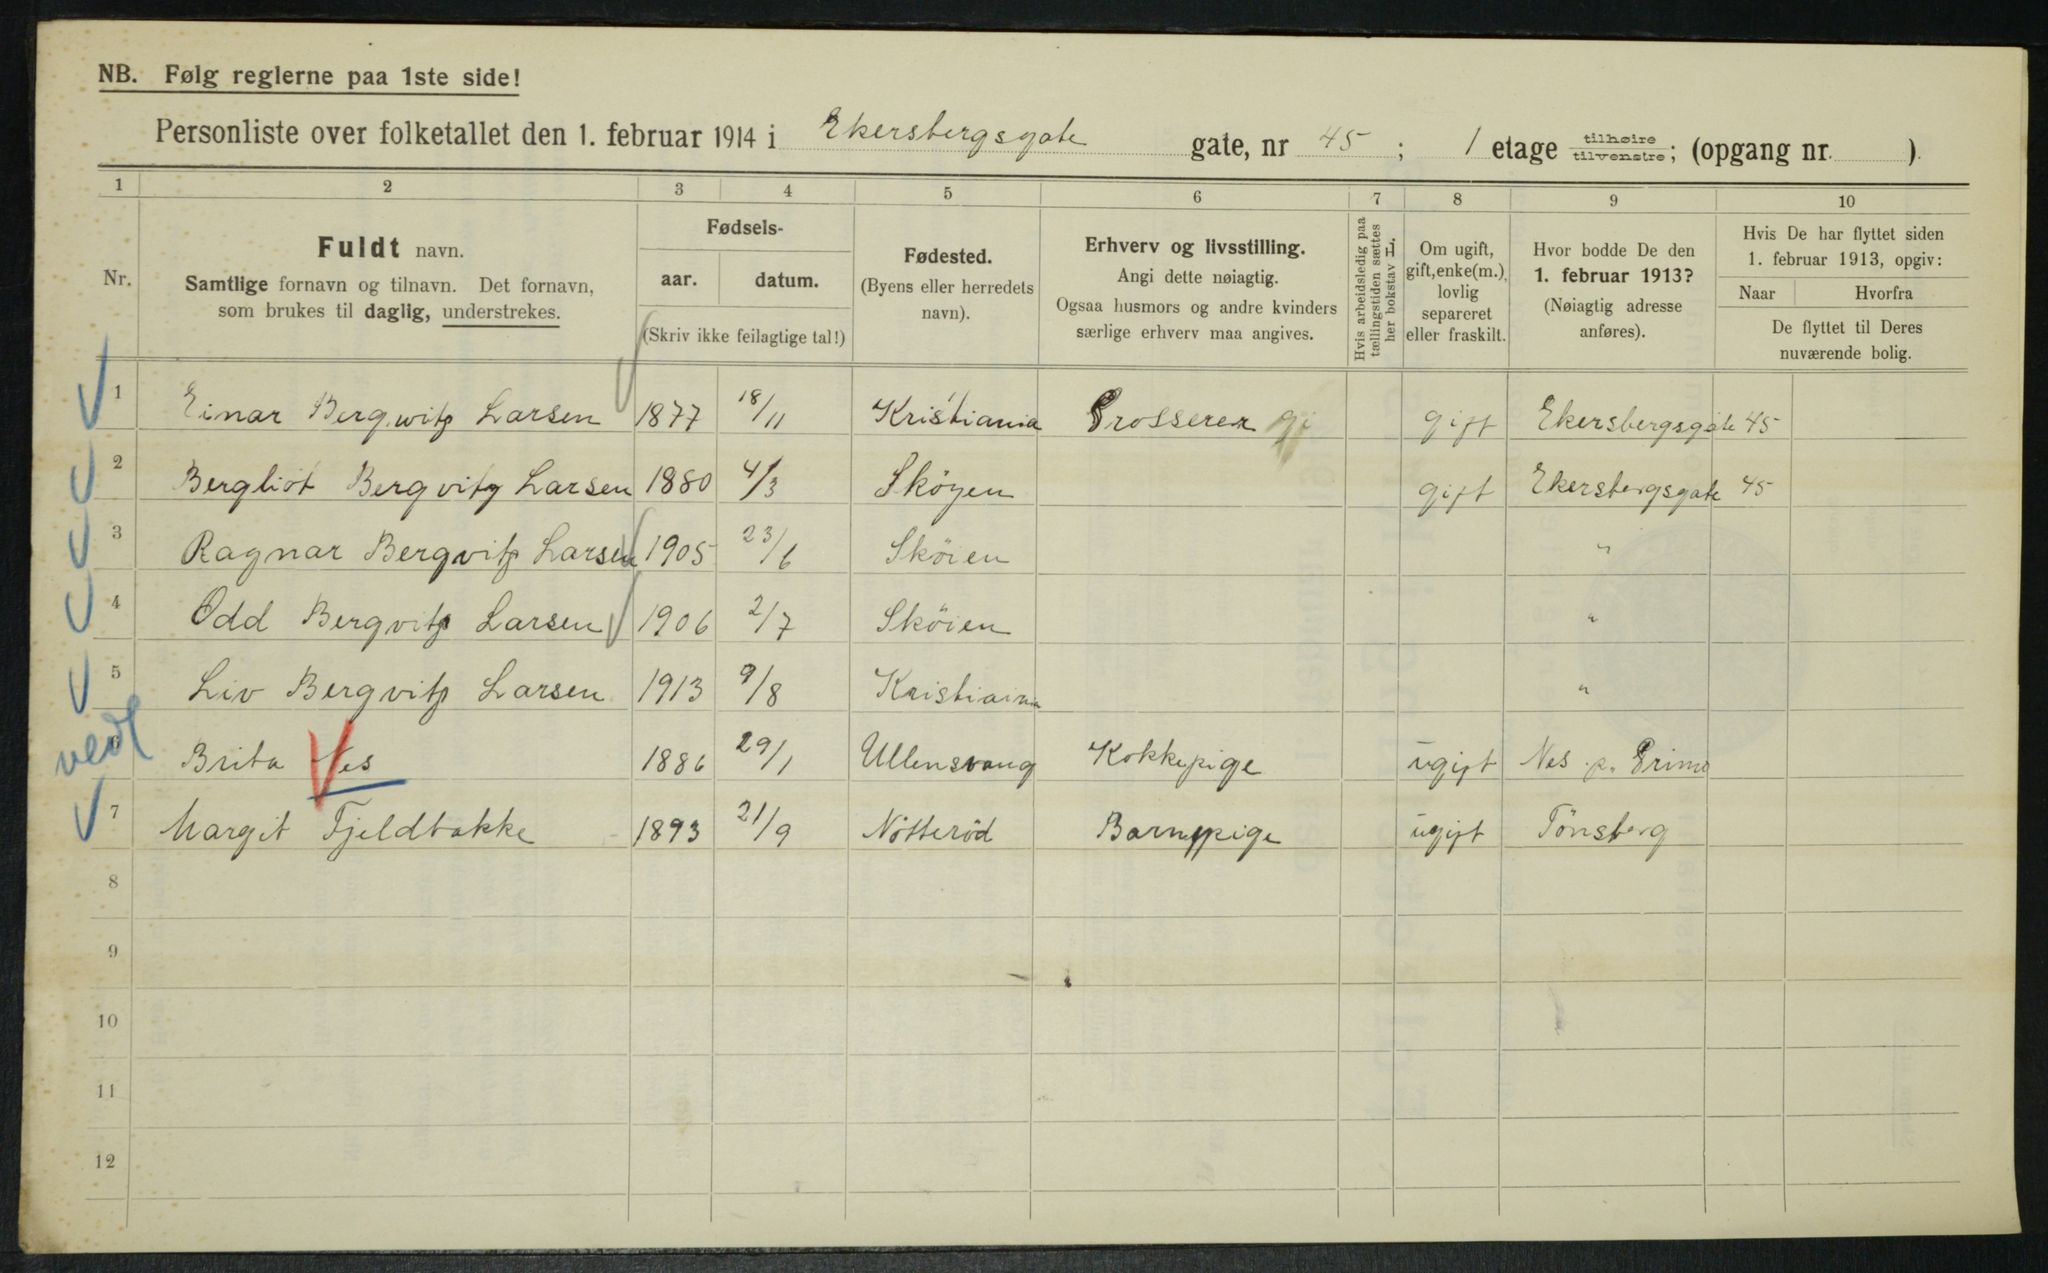 NB. Følg reglerne paa 1ste side!
Personliste over folketallet den 1. februar 1914 i Ekersbergsgate gate, nr 45; 1 etage tilhøire tilvenstre; (opgang nr. ).
1 2 3 4 5 6 7 8 9 10
Nr.
Fuldt navn.
Samtlige fornavn og tilnavn. Det fornavn,
som brukes til daglig, understrekes.
Fødsels-
aar. datum.
(Skriv ikke feilagtige tal!)
Fødested.
(Byens eller herredets
navn).
Erhverv og livsstilling.
Angi dette nøiagtig.
Ogsaa husmors og andre kvinders
særlige erhverv maa angives.
Hvis arbeidsledig paa
tællingstiden sættes
her bokstav L.
Om ugift,
gift, enke(m.),
lovlig
separeret
eller fraskilt.
Hvor bodde De den
1. februar 1913?
(Nøiagtig adresse
anføres).
Hvis De har flyttet siden
1. februar 1913, opgiv:
Naar Hvorfra
De flyttet til Deres
nuværende bolig.
1 Einar Bergwitz Larsen 1877 18/11 Kristiania Grosserer gi gift Ekersbergsgate 45
2 Bergliot Bergvitz Larsen 1880 4/3 Sköyen gift Ekersbergsgate 45
3 Ragnar Bergvitz Larsen 1905 23/6 Sköien "
4 Odd Bergvitz Larsen 1906 2/7 Sköien "
5 Liv Bergvitz Larsen 1913 9/8 Kristiania "
vedl
6 Brita Nes 1886 29/1 Ullensvang Kokkepige ugift Nes p. Grimo
7 Margit Fjeldbakke 1893 21/9 Nötteröd Barnepige ugift Tönsberg
8
9
10
11
12